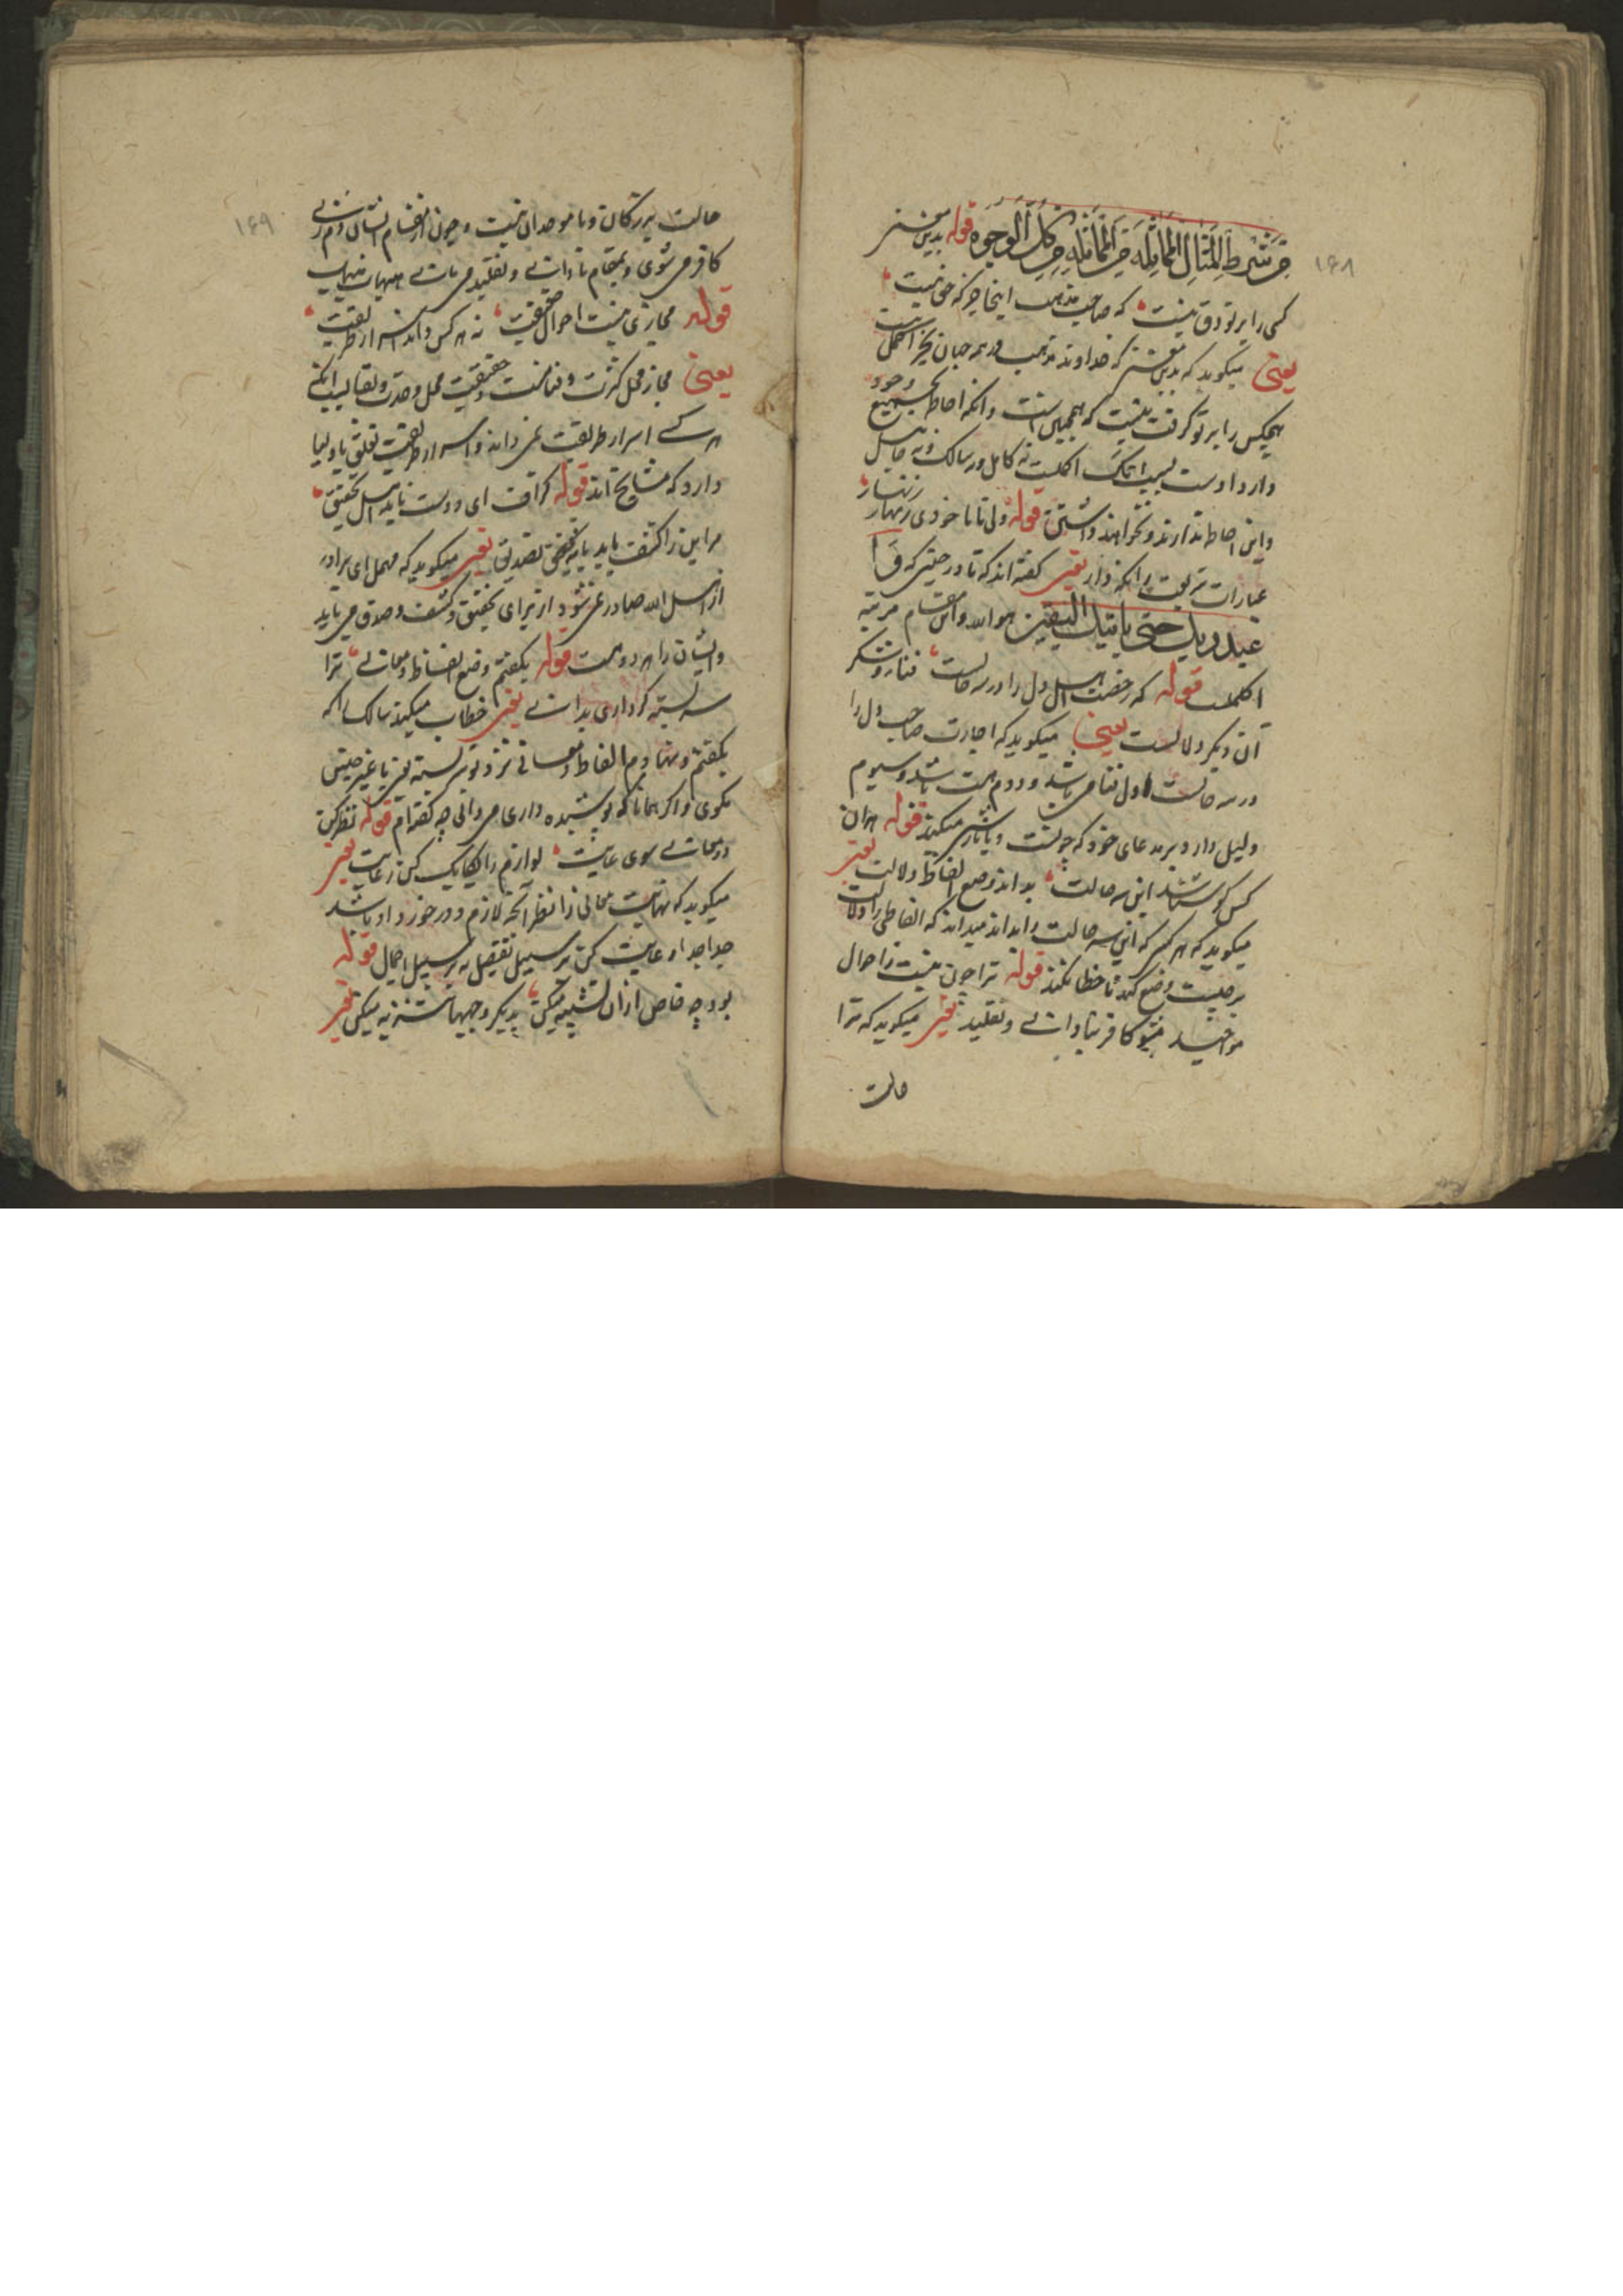 ۱۶۸
من شرط المثال المماثله من المماثله من کل الوجوه قوله بدین معنی
کسی را بر تو دق نیست که صاحب مذهب اینجا جز که حق نیست
یعنی میگوید که بدین معنی که خداوند مذهب در همه جهان بجز اکمل نیست
هیچکس را بر تو گرفت نیست که همچنین است و آنکه احاطه بجمیع وجود
دارد اوست اکملست نه کامل و نه سالک و نه جاهل
و این احاطه ندارند و نخواهند داشتن قوله ولی تا با خودی زنهار زنهار
عبارات شریعت را نگه دار یعنی گفته اند که تا در حینی که و ا
عبد ربک حتی یاتیک الیقین هو الله و این مقام مرتبه
اکملست قوله که رخصت اهل دل را در سه حالت فنا و سکر
آن دیگر دلالت یعنی میگوید که اجازت صاحب دل را
در سه حالت اول فنا می باشد و دوم مست باشد و سیوم
دلیل دارد بر مدعای خود که چونست و یا تاثیر میکند قوله هران
کس کو شناسد این سه حالت بداند وضع الفاظ و دلالت یعنی
میگوید که هر کس که این سه حالت را بداند میداند که الفاظ را دلالت
بر چیست وضع کند تا خطا نکند قوله ترا چون نیست احوال
مواجید مشو کافر بنادانی و تقلید یعنی میگوید که ترا
حالت
۱۶۹
حالت بزرگان و با موحدان نیست و چون از مقام ایشان دم زنی
کافر می شوی و بمقام نادانی و تقلید می مانی هیهات هیهات
قوله مجازی نیست احوال حقیقت نه هر کس داند اسرار طریقت
یعنی مجاز محل کثرت و فناست و حقیقت محل وحدت و بقا
هر کسی اسرار طریقت نمی داند و اسرار طریقت تعلق باولیا
دارد که مشایخ اند قوله گزاف ای دوست ناید ز اهل تحقیق
مر این را کشف باید یا که تصدیق یعنی میگوید که مهمل ای برادر
از اهل الله صادر نمی شود از برای تحقیق و کشف و صدق می باید
و ایشان را هر دو هست قوله بگفتم وضع الفاظ و معانی ترا
سربسته گر داری بدانی یعنی خطاب میکند سالک را که
بگفتم و نهادم الفاظ و معانی نزد تو سربسته یعنی با غیر جنس
مگوی و اگر همانا که پوشیده داری می دانی چه گفته ام قوله نظر کن
در معانی سوی غایت لوازم را یکایک کن رعایت یعنی
میگوید که نهایت معانی را نظر آنچه لازم و در خورد او باشد
جدا جدا رعایت کن بر سبیل تفصیل نه بر سبیل اجمال قوله
بوجه خاص از ان تشبیه میکن ز دیگر وجهها تنزیه میکن یعنی